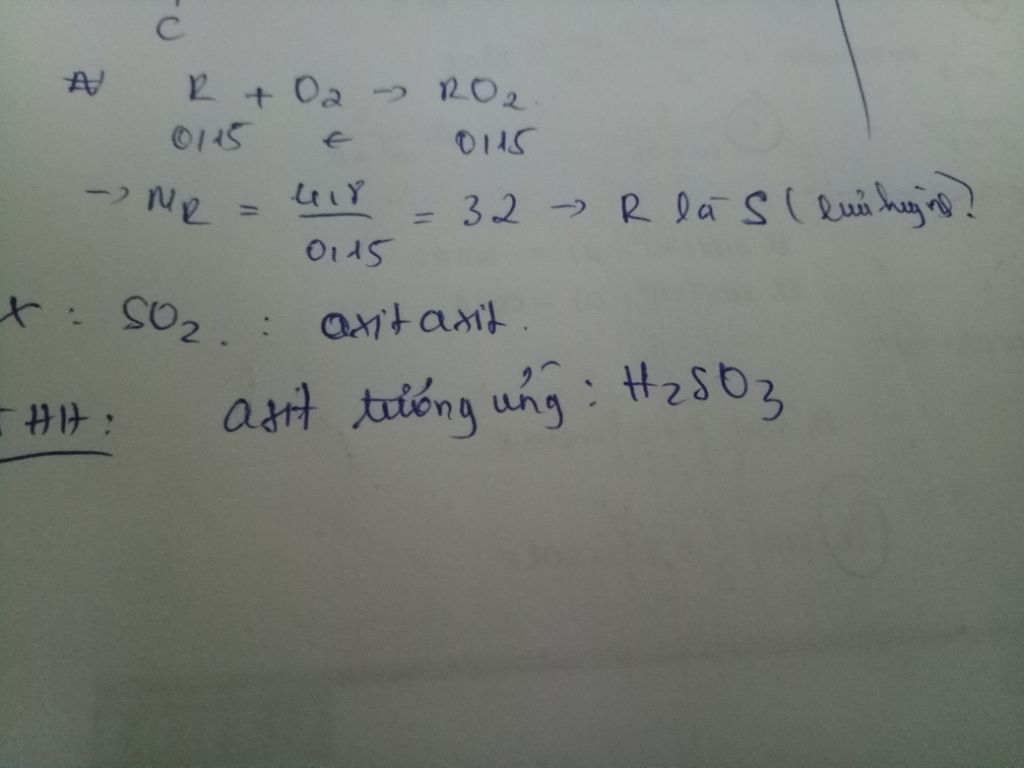 C
R + O2 → RO2.
0,15 ← 0,15
→ MR = 4,8 / 0,15 = 32 → R là S (lưu huỳnh)
X : SO2 : axit axit.
THH: axit tướng ứng : H2SO3